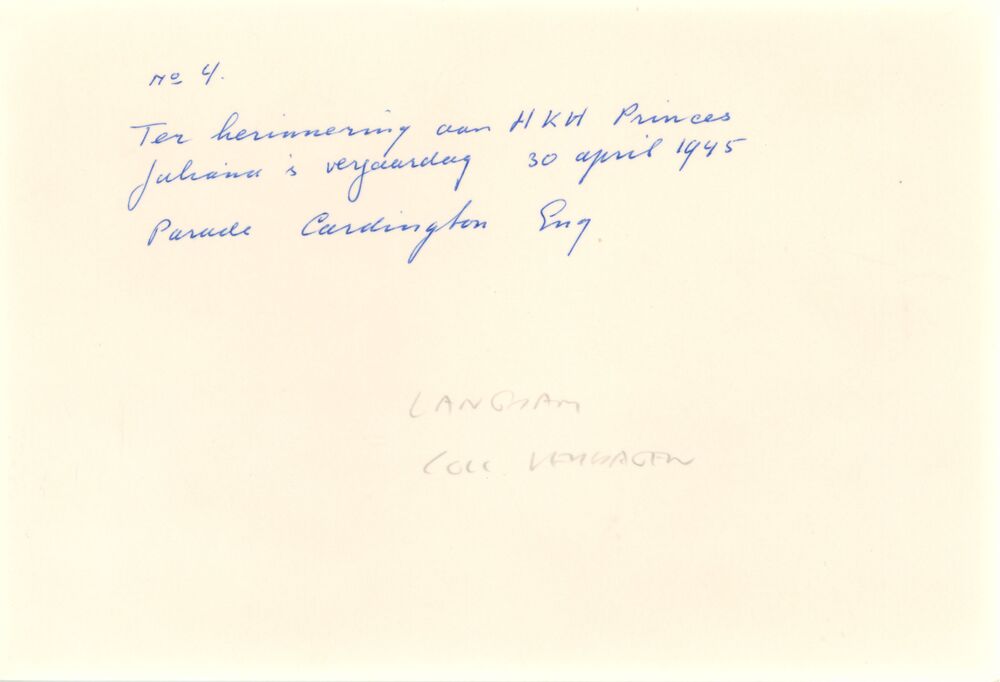 No 4.
Ter herinnering aan HKH Princes
Juliana's verjaardag 30 april 1945
Parade Cardington Eng
LANGHAM
COLL. VERHAGEN